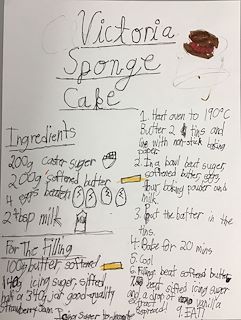 Victoria
Sponge
Cake
Ingredients
200g caster sugar
200g softened butter
4 eggs beaten
2 tbsp milk
For The Filling
100g butter, softened
140g icing sugar, sifted
half a 340g jar good-quality
Strawberry Jam
icing sugar to decorate
1. Heat oven to 190°C
Butter 2 tins and
line with non-stick baking
paper
2. In a bowl beat sugar,
softened butter, eggs,
flour, baking powder and
milk
3. Put the batter in the
tins.
4. Bake for 20 mins
5. Cool
6. Filling: beat softened butter
7. beat sifted icing sugar
and a drop of vanilla
extract
8. spread!
9. EAT!